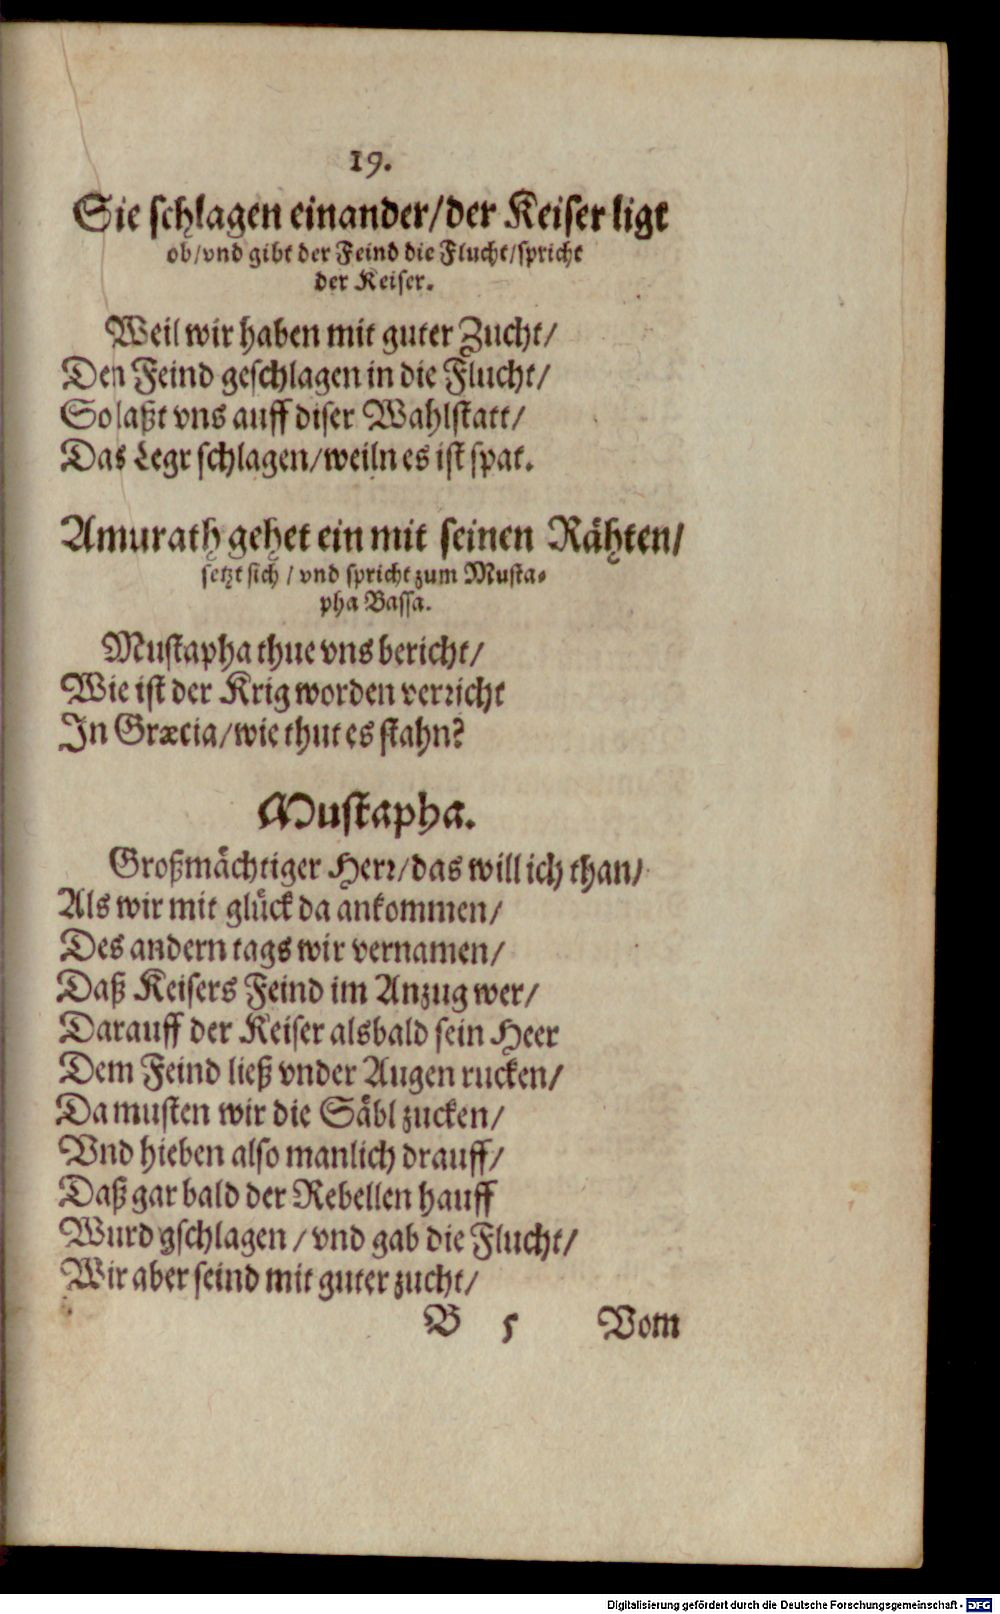 19.
Sie schlagen einander/der Keiser ligt
ob/vnd gibt der Feind die Flucht/spricht
der Keiser.
Weil wir haben mit guter Zucht/
Den Feind geschlagen in die Flucht/
So laßt vns auff diser Wahlstatt/
Das Legr schlagen/weiln es ist spat.
Amurath gehet ein mit seinen Rähten/
setzt sich / vnd spricht zum Musta-
pha Bassa.
Mustapha thue vns bericht/
Wie ist der Krig worden verricht
In Græcia/wie thut es stahn?
Mustapha.
Großmächtiger Herr/das will ich than/
Als wir mit glück da ankommen/
Des andern tags wir vernamen/
Daß Keisers Feind im Anzug wer/
Darauff der Keiser alsbald sein Heer
Dem Feind ließ vnder Augen rucken/
Da musten wir die Säbl zucken/
Vnd hieben also manlich drauff/
Daß gar bald der Rebellen hauff
Wurd gschlagen / vnd gab die Flucht/
Wir aber seind mit guter zucht/
B 5 Vom
Digitalisierung gefördert durch die Deutsche Forschungsgemeinschaft - DFG